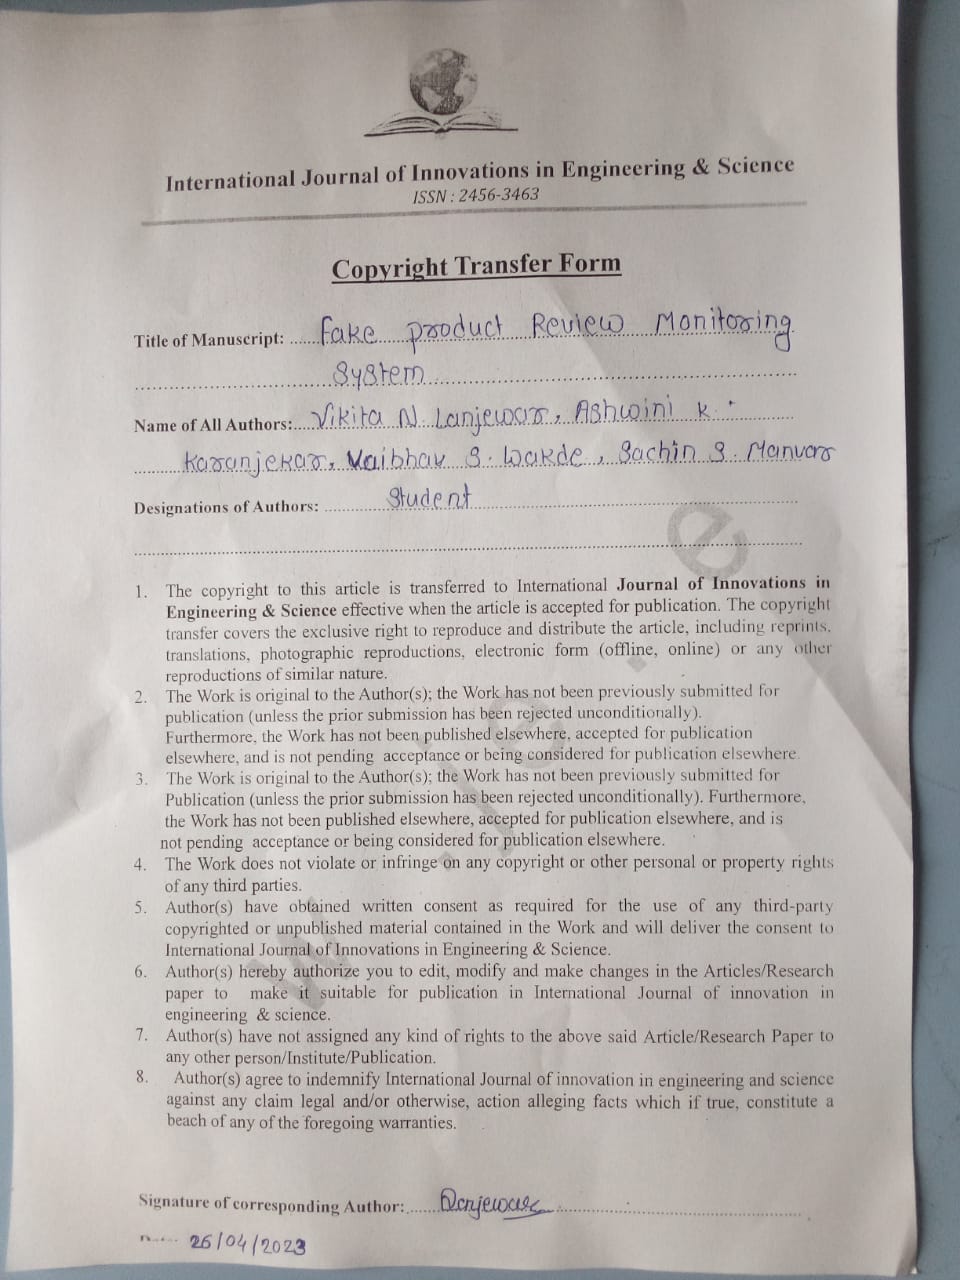 International Journal of Innovations in Engineering & Science
ISSN : 2456-3463
Copyright Transfer Form
Title of Manuscript: Fake product Review Monitoring
System
Name of All Authors: Vikita N. Lanjewar, Ashwini K.
Karanjekar, Vaibhav S. Wakde, Sachin S. Manvar
Designations of Authors: Student
1. The copyright to this article is transferred to International Journal of Innovations in
Engineering & Science effective when the article is accepted for publication. The copyright
transfer covers the exclusive right to reproduce and distribute the article, including reprints,
translations, photographic reproductions, electronic form (offline, online) or any other
reproductions of similar nature.
2. The Work is original to the Author(s); the Work has not been previously submitted for
publication (unless the prior submission has been rejected unconditionally).
Furthermore, the Work has not been published elsewhere, accepted for publication
elsewhere, and is not pending acceptance or being considered for publication elsewhere.
3. The Work is original to the Author(s); the Work has not been previously submitted for
Publication (unless the prior submission has been rejected unconditionally). Furthermore,
the Work has not been published elsewhere, accepted for publication elsewhere, and is
not pending acceptance or being considered for publication elsewhere.
4. The Work does not violate or infringe on any copyright or other personal or property rights
of any third parties.
5. Author(s) have obtained written consent as required for the use of any third-party
copyrighted or unpublished material contained in the Work and will deliver the consent to
International Journal of Innovations in Engineering & Science.
6. Author(s) hereby authorize you to edit, modify and make changes in the Articles/Research
paper to make it suitable for publication in International Journal of innovation in
engineering & science.
7. Author(s) have not assigned any kind of rights to the above said Article/Research Paper to
any other person/Institute/Publication.
8. Author(s) agree to indemnify International Journal of innovation in engineering and science
against any claim legal and/or otherwise, action alleging facts which if true, constitute a
beach of any of the foregoing warranties.
Signature of corresponding Author:
26/04/2023